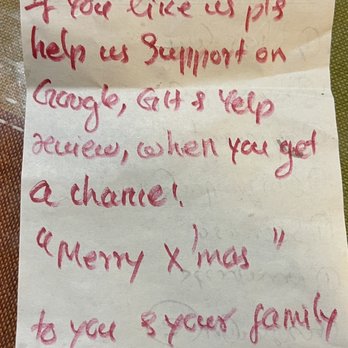 If you like us pls
help us Support on
Google, GH & Yelp
review, when you get
a chance!
"Merry X'mas"
to you & your family